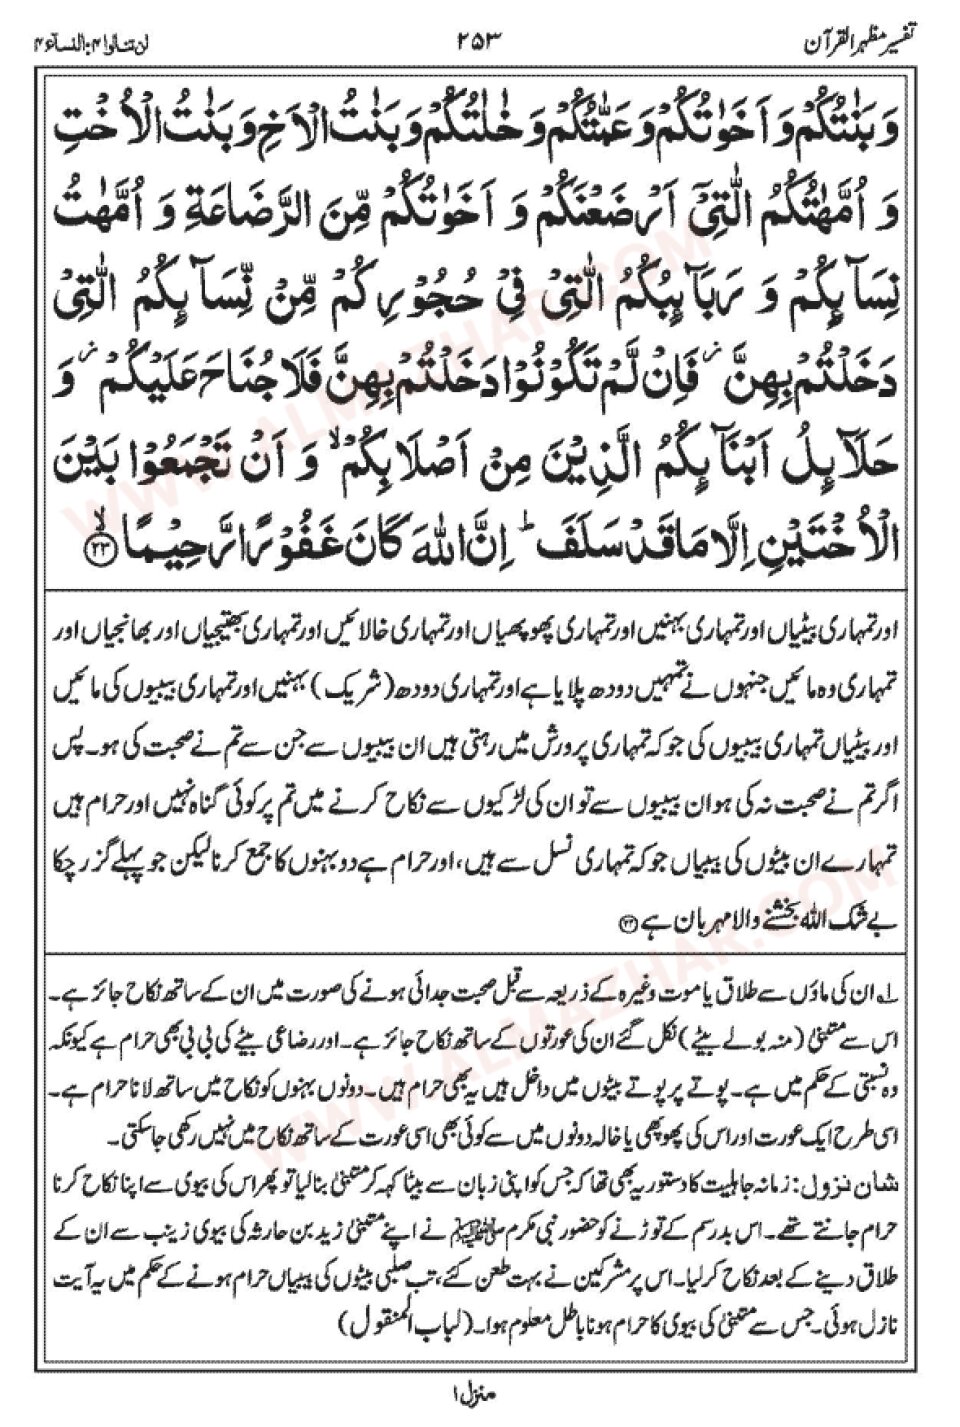 تفسیر مظہر القرآن
۲۵۳
لن تنالوا ۴: النسآء ۴
وَبَنٰتُکُمْ وَ اَخَوٰتُکُمْ وَ عَمّٰتُکُمْ وَ خٰلٰتُکُمْ وَ بَنٰتُ الْاَخِ وَ بَنٰتُ الْاُخْتِ
وَ اُمَّهٰتُکُمُ الّٰتِیْۤ اَرْضَعْنَکُمْ وَ اَخَوٰتُکُمْ مِّنَ الرَّضَاعَةِ وَ اُمَّهٰتُ
نِسَآىِٕکُمْ وَ رَبَآىِٕبُکُمُ الّٰتِیْ فِیْ حُجُوْرِکُمْ مِّنْ نِّسَآىِٕکُمُ الّٰتِیْ
دَخَلْتُمْ بِهِنَّ ؗ فَاِنْ لَّمْ تَکُوْنُوْا دَخَلْتُمْ بِهِنَّ فَلَا جُنَاحَ عَلَیْکُمْ ؗ وَ
حَلَآىِٕلُ اَبْنَآىِٕکُمُ الَّذِیْنَ مِنْ اَصْلَابِکُمْ ۙ وَ اَنْ تَجْمَعُوْا بَیْنَ
الْاُخْتَیْنِ اِلَّا مَا قَدْ سَلَفَ ؕ اِنَّ اللّٰهَ کَانَ غَفُوْرًا رَّحِیْمًا ۙ ﴿۲۳﴾
اور تمہاری بیٹیاں اور تمہاری بہنیں اور تمہاری پھوپھیاں اور تمہاری خالائیں اور تمہاری بھتیجیاں اور بھانجیاں اور
تمہاری وہ مائیں جنہوں نے تمہیں دودھ پلایا ہے اور تمہاری دودھ (شریک) بہنیں اور تمہاری بیبیوں کی مائیں
اور بیٹیاں تمہاری بیبیوں کی جو کہ تمہاری پرورش میں رہتی ہیں ان بیبیوں سے جن سے تم نے صحبت کی ہو۔ پس
اگر تم نے صحبت نہ کی ہو ان بیبیوں سے تو ان کی لڑکیوں سے نکاح کرنے میں تم پر کوئی گناہ نہیں اور حرام ہیں
تمہارے ان بیٹوں کی بیبیاں جو کہ تمہاری نسل سے ہیں، اور حرام ہے دو بہنوں کا جمع کرنا لیکن جو پہلے گزر چکا
بے شک اللہ بخشنے والا مہربان ہے ﴿۲۳﴾
۱؎ ان کی ماؤں سے طلاق یا موت وغیرہ کے ذریعہ سے قبل صحبت جدائی ہونے کی صورت میں ان کے ساتھ نکاح جائز ہے۔
اس سے متبنیٰ (منہ بولے بیٹے) نکل گئے ان کی عورتوں کے ساتھ نکاح جائز ہے۔ اور رضاعی بیٹے کی بی بی بھی حرام ہے کیونکہ
وہ نسبتی کے حکم میں ہے۔ پوتے پر پوتے بیٹوں میں داخل ہیں یہ بھی حرام ہیں۔ دونوں بہنوں کو نکاح میں ساتھ لانا حرام ہے۔
اسی طرح ایک عورت اور اس کی پھوپھی یا خالہ دونوں میں سے کوئی بھی اسی عورت کے ساتھ نکاح میں نہیں رکھی جاسکتی۔
شان نزول: زمانہ جاہلیت کا دستور یہ بھی تھا کہ جس کو اپنی زبان سے بیٹا کہہ کر متبنیٰ بنا لیا تو پھر اس کی بیوی سے اپنا نکاح کرنا
حرام جانتے تھے۔ اس بد رسم کے توڑنے کو حضور نبی مکرم ﷺ نے اپنے متبنیٰ زید بن حارثہ کی بیوی زینب سے ان کے
طلاق دینے کے بعد نکاح کر لیا۔ اس پر مشرکین نے بہت طعن کئے، تب صلبی بیٹوں کی بیبیاں حرام ہونے کے حکم میں یہ آیت
نازل ہوئی۔ جس سے متبنیٰ کی بیوی کا حرام ہونا باطل معلوم ہوا۔ (لباب المنقول)
منزل ۱
WWW.ALMAZHAR.COM
WWW.ALMAZHAR.COM